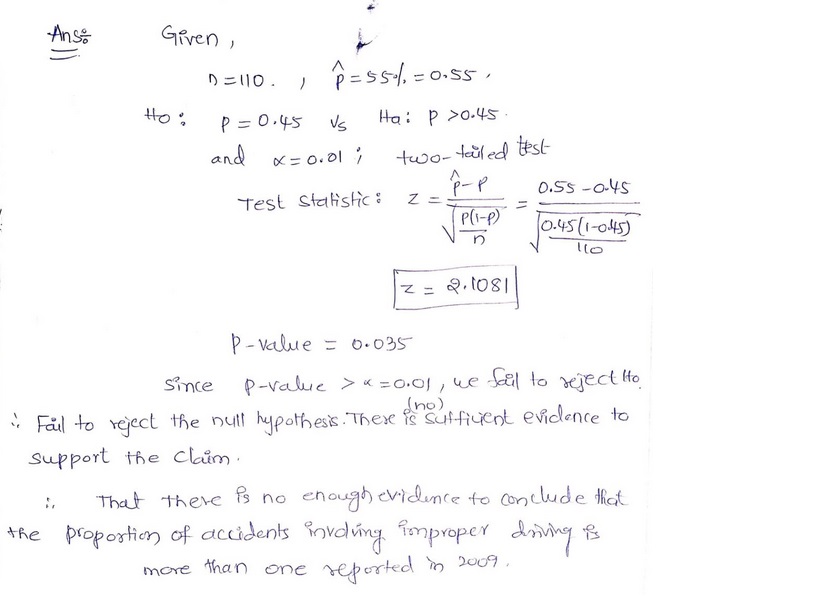 Ans:
Given,
n=110. , p̂ = 55% = 0.55.
Ho: p = 0.45 vs Ha: p >0.45.
and α = 0.01; two-tailed test
Test Statistic: z = (p̂ - p) / √(p(1-p)/n) = (0.55 - 0.45) / √(0.45(1-0.45)/110)
z = 2.1081
P-value = 0.035
Since p-value > α = 0.01, we fail to reject Ho.
∴ Fail to reject the null hypothesis. There is (no) sufficient evidence to
support the claim.
∴ That there is no enough evidence to conclude that
the proportion of accidents involving improper driving is
more than one reported in 2009.